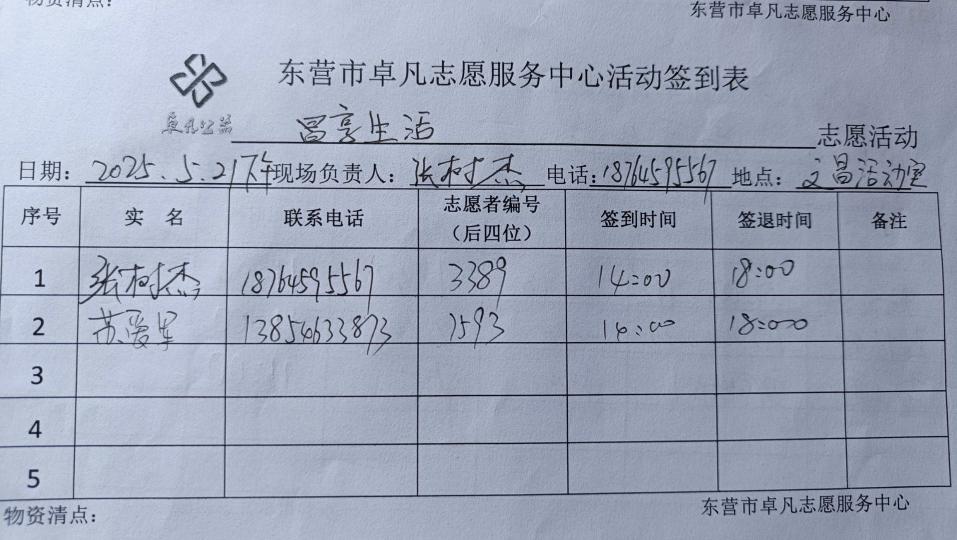 物资清点：
东营市卓凡志愿服务中心
东营市卓凡志愿服务中心活动签到表
卓凡公益
昌享生活 志愿活动
日期：2025.5.21下午 现场负责人：张树杰 电话：18764595567 地点：文昌活动室
序号 实 名 联系电话 志愿者编号（后四位） 签到时间 签退时间 备注
1 张树杰 18764595567 3389 14:00 18:00
2 苏爱军 13854633873 7593 14:00 18:00
3
4
5
物资清点：
东营市卓凡志愿服务中心